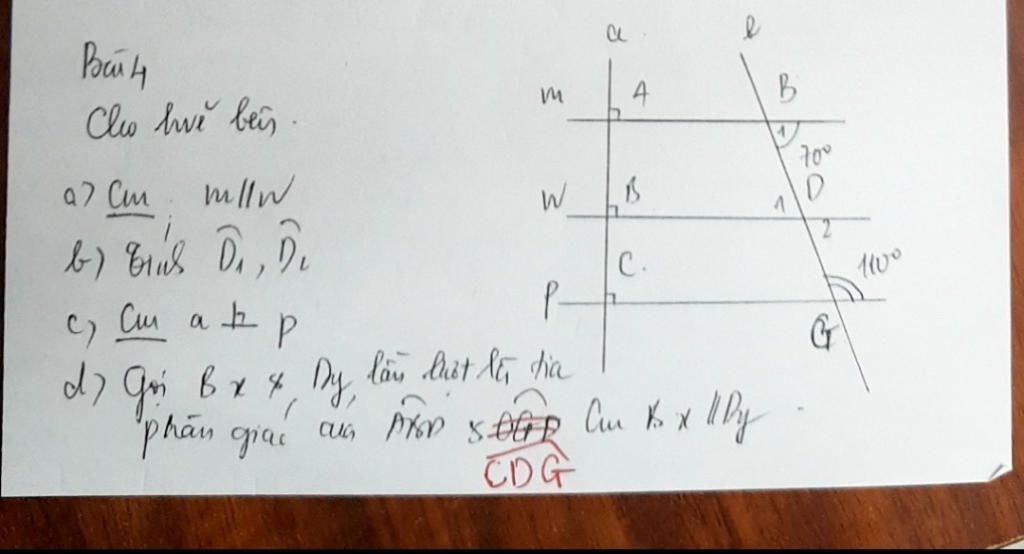 Bài 4
Cho hvẽ bên.
a) Cm m//n
b) Tính D̂₁, D̂₂
c) Cm a ⊥ p
d) Gọi Bx & Dy, lần lượt là tia
phân giác của & Cm Bx // Dy
CDG
a
b
m
A
B
1
70°
n
B
1
D
2
C
110°
P
G